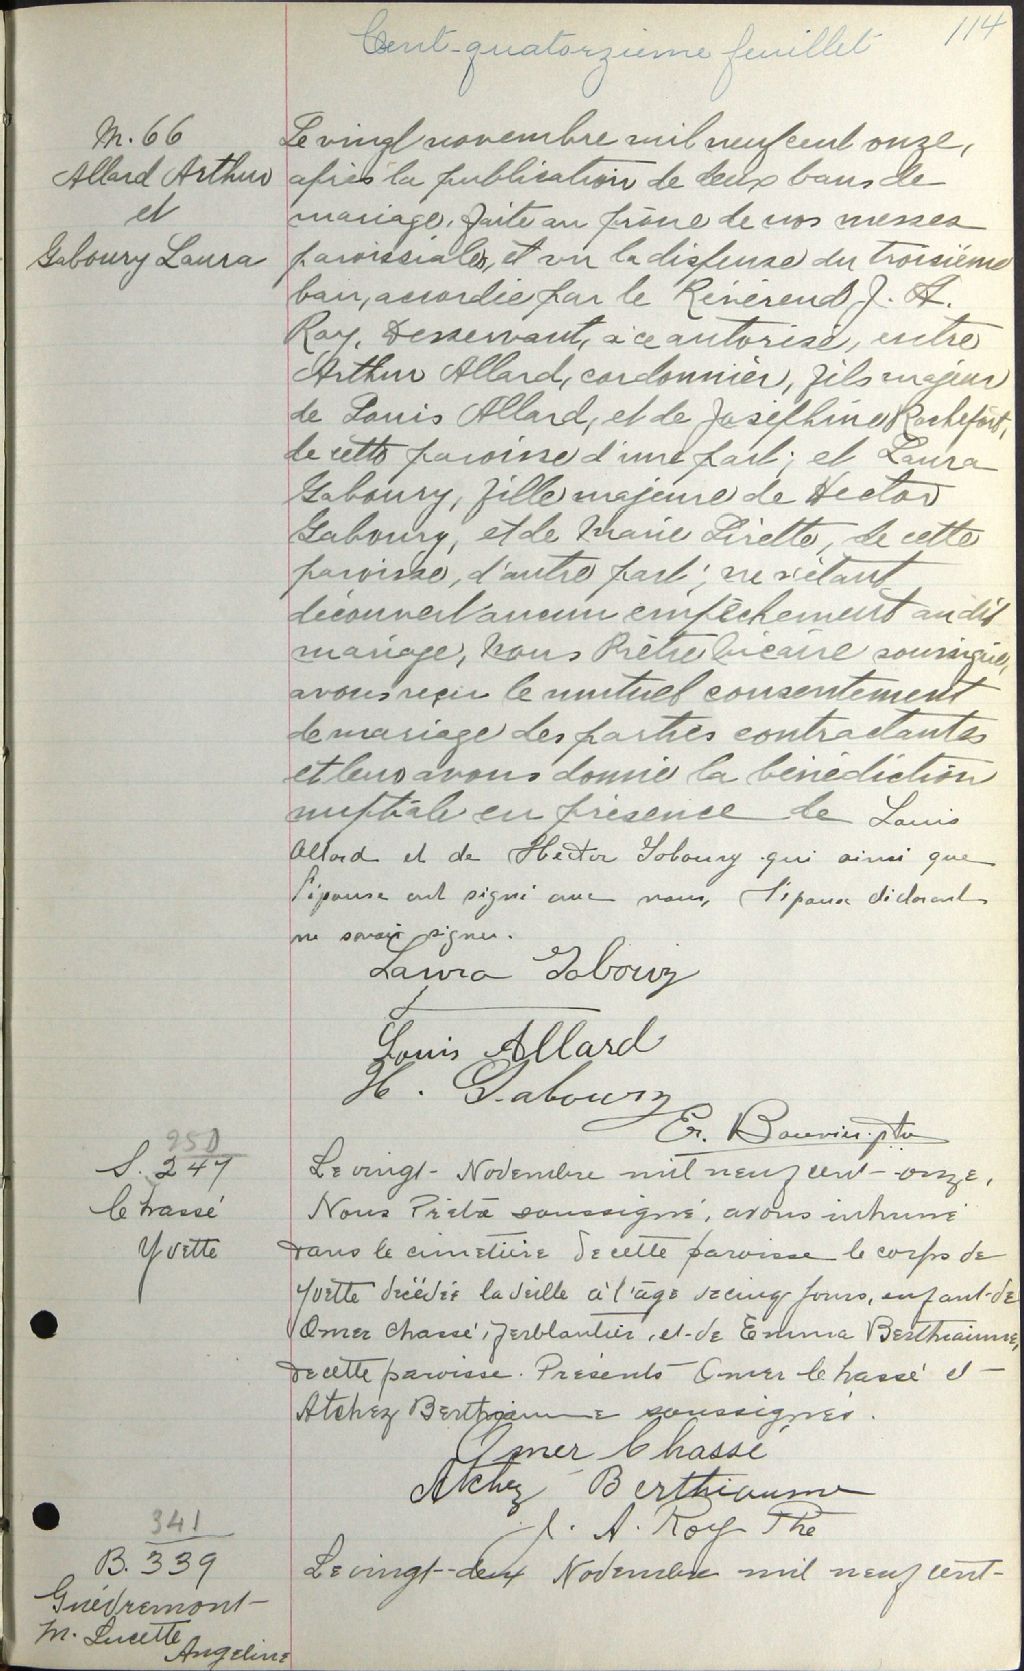 Cent-quatorzieme feuillet 114
M. 66
Allard Arthur
et
Gaboury Laura
Le vingt novembre mil neuf cent onze,
après la publication de deux bans de
mariage, faite au prône de nos messes
paroissiales, et vu la dispense du troisième
ban, accordée par le Révérend J. A.
Roy, Desservant, à ce autorisé, entre
Arthur Allard, cordonnier, fils majeur
de Louis Allard, et de Joséphine Rochefort,
de cette paroisse d'une part; et Laura
Gaboury, fille majeure de Hector
Gaboury, et de Marie Pirette, de cette
paroisse, d'autre part; ne s'étant
découvert aucun empêchement au dit
mariage, Nous Prêtre Vicaire soussigné,
avons reçu le mutuel consentement
de mariage des parties contractantes
et leur avons donné la bénédiction
nuptiale en présence de Louis
Allard et de Hector Gaboury qui ainsi que
l'épouse ont signé avec nous, l'époux déclarant
ne savoir signer.
Laura Gaboury
Louis Allard
H. Gaboury
Er. ptre
250
S. 247
Chassé
Yvette
Le vingt Novembre mil neuf cent onze,
Nous Prêtre soussigné, avons inhumé
dans le cimetière de cette paroisse le corps de
Yvette décédée la veille à l'âge de cinq jours, enfant de
Omer Chassé, ferblantier, et de Emma Berthiaume,
de cette paroisse. Présents Omer Chassé et
Atchez Berthiaume soussignés.
Omer Chassé
Atchez Berthiaume
J. A. Roy Ptre
341
B. 339
Guévremont
M. Lucette
Angeline
Le vingt-deux Novembre mil neuf cent-